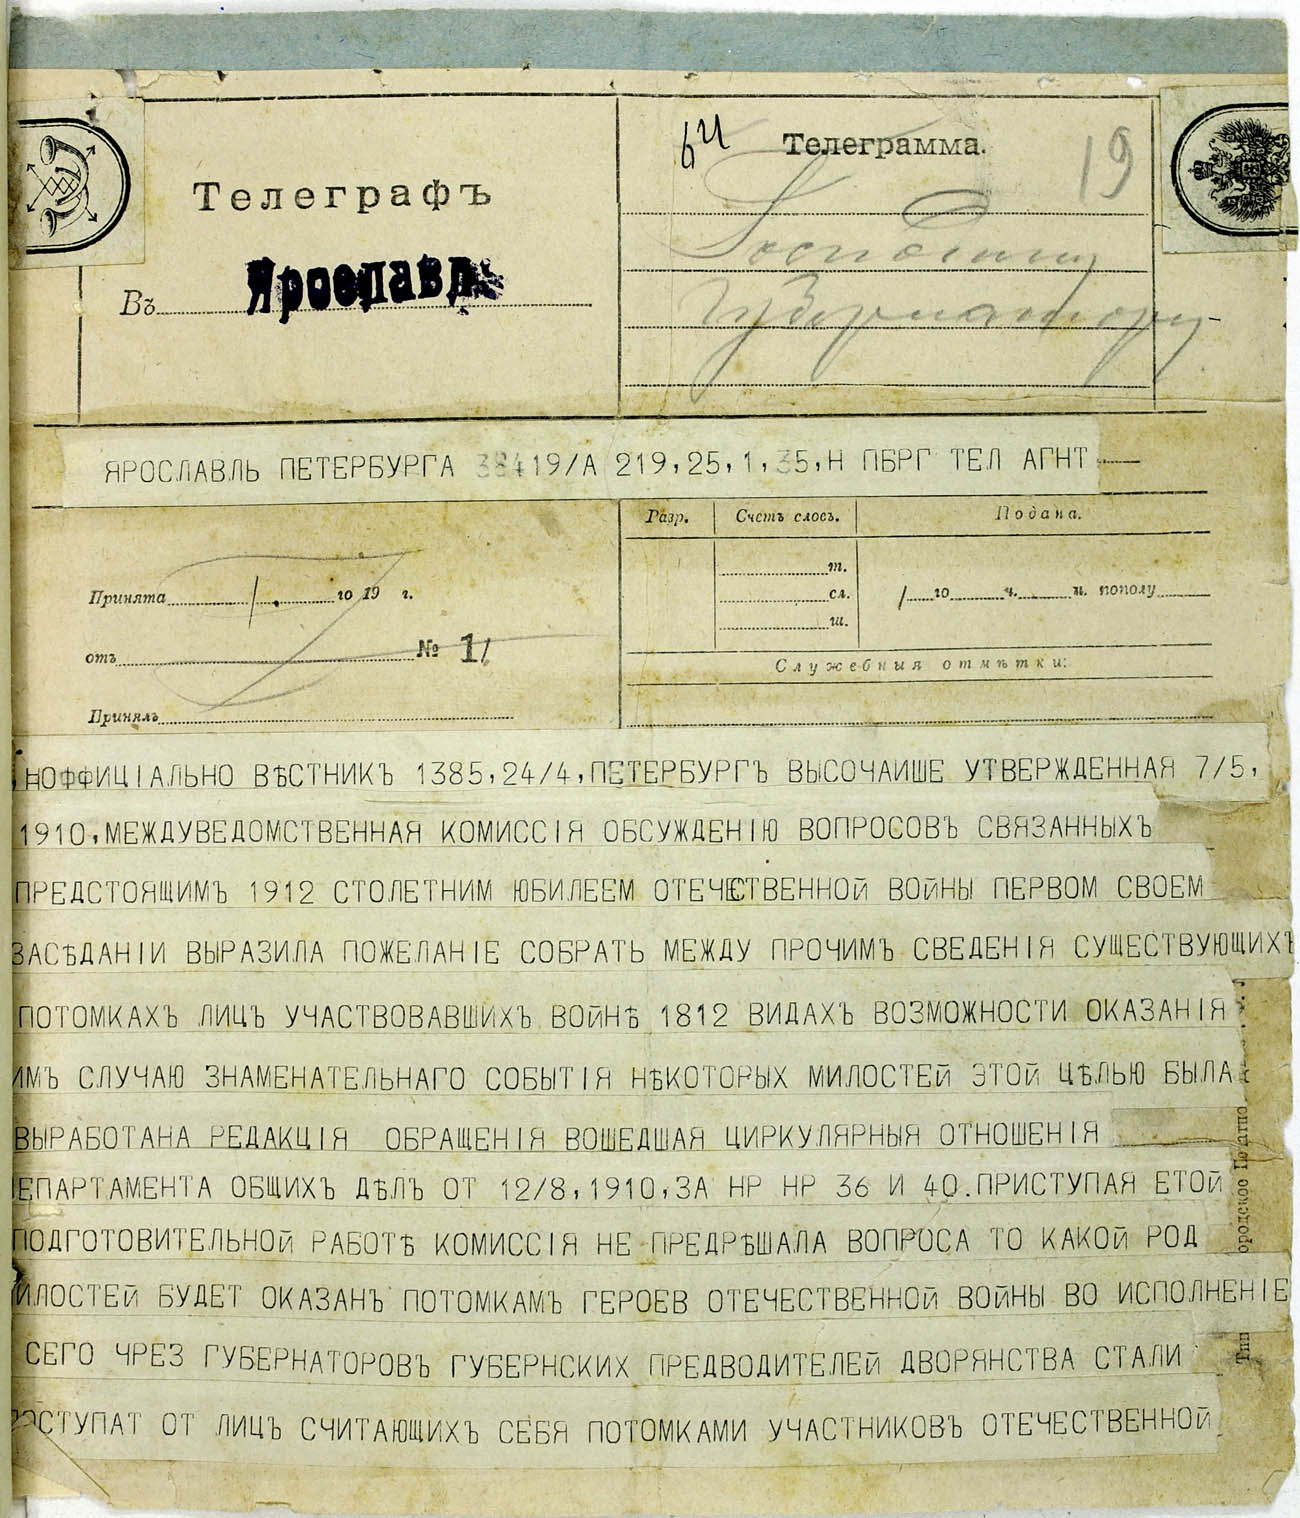 Телеграфъ
Въ Ярославль
Телеграмма.
19
Господину
Губернатору
ЯРОСЛАВЛЬ ПЕТЕРБУРГА 38419/А 219,25,1,35,Н ПБРГ ТЕЛ АГНТ
Разр. Счетъ словъ. Подана.
Принята 1. го 19 г.
т.
сл.
ш.
/ го ч. м. пополу
отъ № 1/
Служебныя отмѣтки:
Принялъ
,НОФФИЦІАЛЬНО ВѢСТНИКЪ 1385,24/4,ПЕТЕРБУРГЪ ВЫСОЧАИШЕ УТВЕРЖДЕННАЯ 7/5,
1910,МЕЖДУВЕДОМСТВЕННАЯ КОМИССІЯ ОБСУЖДЕНІЮ ВОПРОСОВЪ СВЯЗАННЫХЪ
ПРЕДСТОЯЩИМЪ 1912 СТОЛЕТНИМ ЮБИЛЕЕМ ОТЕЧЕСТВЕННОЙ ВОЙНЫ ПЕРВОМ СВОЕМ
ЗАСѢДАНІИ ВЫРАЗИЛА ПОЖЕЛАНІЕ СОБРАТЬ МЕЖДУ ПРОЧИМЪ СВЕДЕНІЯ СУЩЕСТВУЮЩИХЪ
ПОТОМКАХЪ ЛИЦЪ УЧАСТВОВАВШИХЪ ВОЙНѢ 1812 ВИДАХЪ ВОЗМОЖНОСТИ ОКАЗАНІЯ
ИМЪ СЛУЧАЮ ЗНАМЕНАТЕЛЬНАГО СОБЫТІЯ НѢКОТОРЫХ МИЛОСТЕЙ ЭТОЙ ЦѢЛЬЮ БЫЛА
ВЫРАБОТАНА РЕДАКЦІЯ ОБРАЩЕНІЯ ВОШЕДШАЯ ЦИРКУЛЯРНЫЯ ОТНОШЕНІЯ
ЕПАРТАМЕНТА ОБЩИХЪ ДѢЛЪ ОТ 12/8,1910,ЗА НР НР 36 И 40.ПРИСТУПАЯ ЕТОЙ
ПОДГОТОВИТЕЛЬНОЙ РАБОТѢ КОМИССІЯ НЕ ПРЕДРѢШАЛА ВОПРОСА ТО КАКОЙ РОД
ИЛОСТЕЙ БУДЕТ ОКАЗАНЪ ПОТОМКАМЪ ГЕРОЕВ ОТЕЧЕСТВЕННОЙ ВОЙНЫ ВО ИСПОЛНЕНІЕ
СЕГО ЧРЕЗ ГУБЕРНАТОРОВЪ ГУБЕРНСКИХ ПРЕДВОДИТЕЛЕЙ ДВОРЯНСТВА СТАЛИ
ПОСТУПАТ ОТ ЛИЦЪ СЧИТАЮЩИХЪ СЕБЯ ПОТОМКАМИ УЧАСТНИКОВЪ ОТЕЧЕСТВЕННОЙ